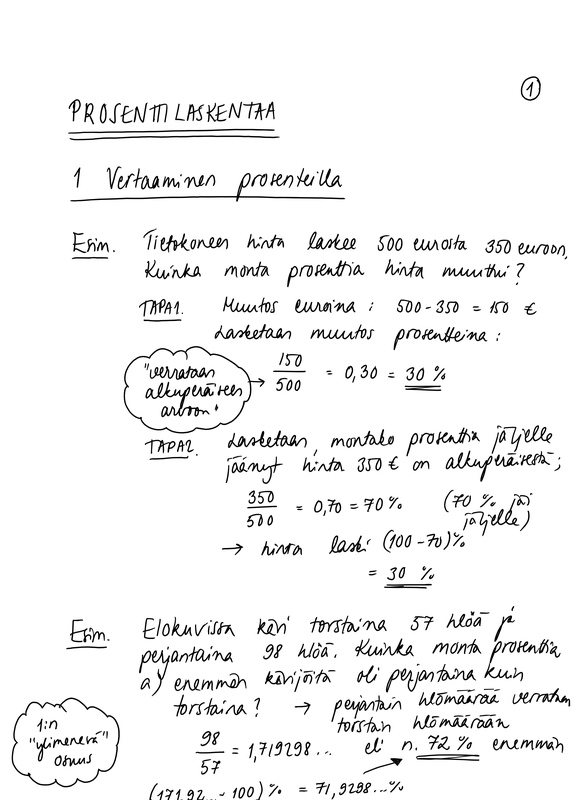 1
PROSENTTILASKENTAA
1 Vertaaminen prosenteilla
Esim. Tietokoneen hinta laskee 500 eurosta 350 euroon.
Kuinka monta prosenttia hinta muuttui?
TAPA1. Muutos euroina: 500-350 = 150 €
Lasketaan muutos prosentteina:
"verrataan
alkuperäiseen
arvoon"
→ 150/500 = 0,30 = 30 %
TAPA2. Lasketaan, montako prosenttia jäljelle
jäänyt hinta 350 € on alkuperäisestä;
350/500 = 0,70 = 70 % (70 % jäi
jäljelle)
→ hinta laski (100-70)%
= 30 %
Esim. Elokuvissa kävi torstaina 57 hlöä ja
perjantaina 98 hlöä. Kuinka monta prosenttia
a) enemmän kävijöitä oli perjantaina kuin
torstaina? → perjantain hlömäärää verrataan
torstain hlömäärään
1:n
"ylimenevä"
osuus
98/57 = 1,719298... eli n. 72 % enemmän
(171,92... - 100) % = 71,9298...%